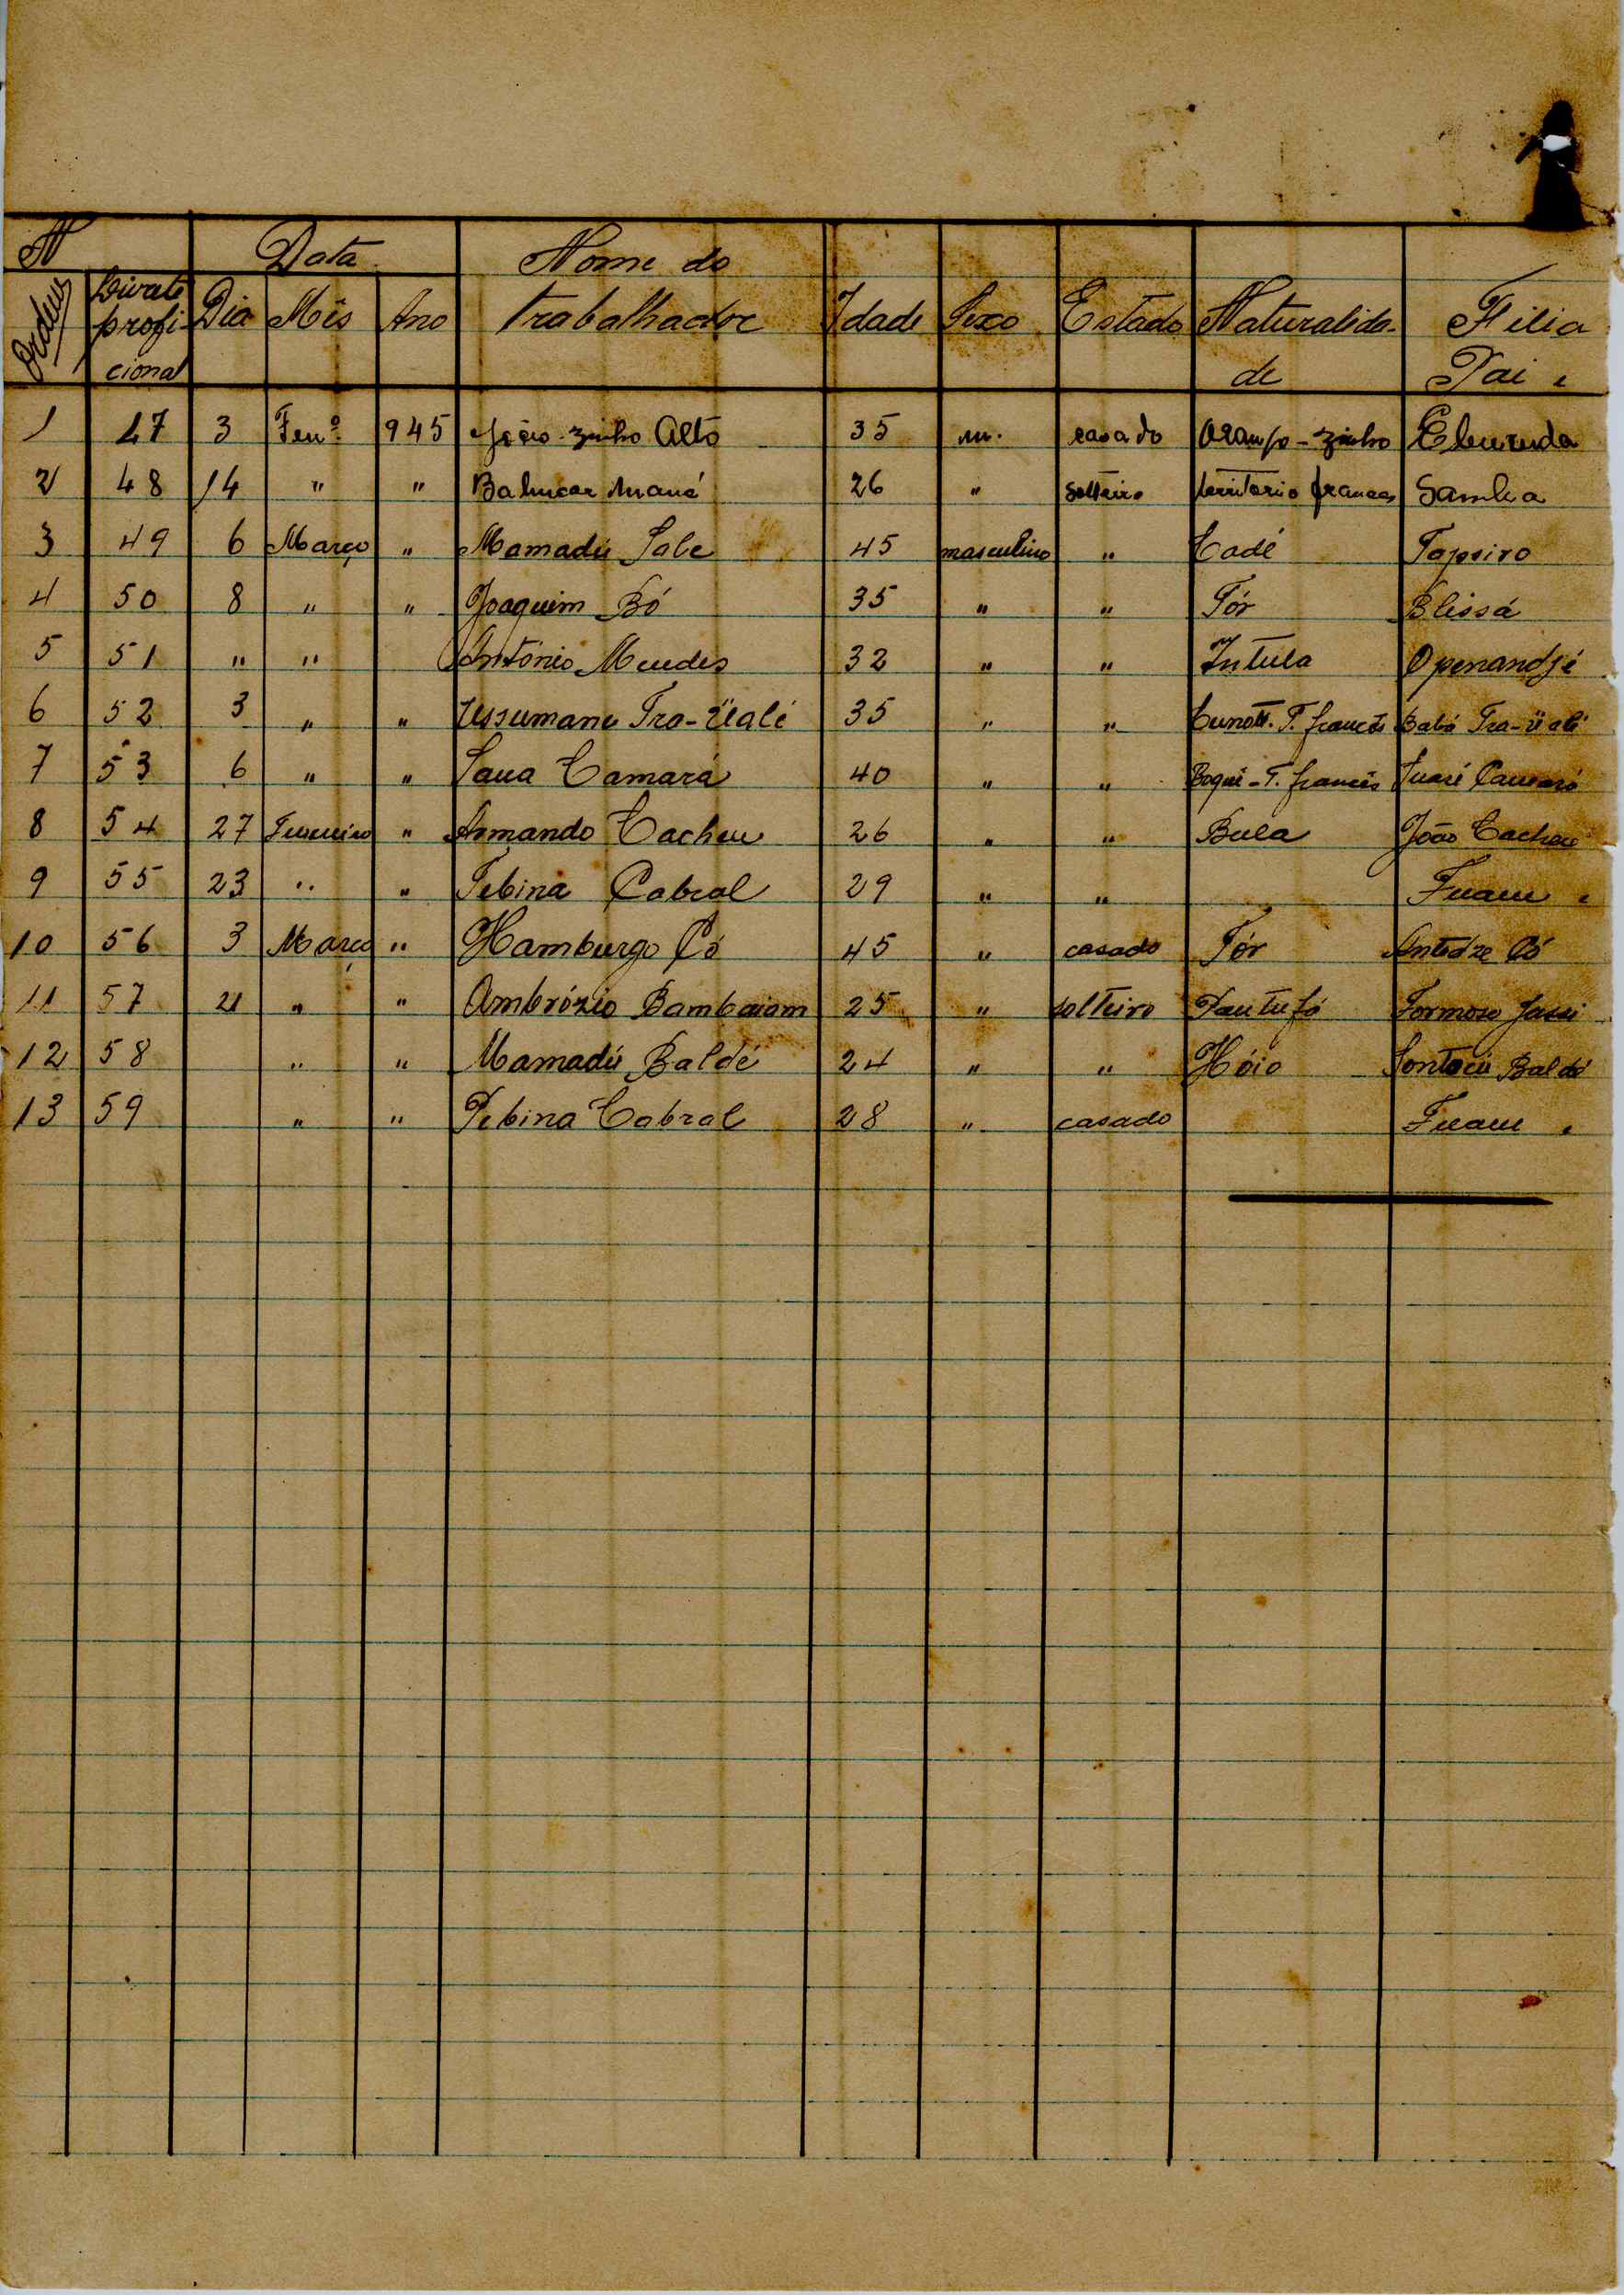 Nº Data Nome do
Ordem Livrete profi- Dia Mês Ano trabalhador Idade Sexo Estado Naturalida- Filia
cional de Pai e
1 47 3 Fevº 945 João-zinho Alto 35 m. casado Orango-zinho Eburnda
2 48 14 " " Babucar Mané 26 " solteiro territorio frances Samba
3 49 6 Março " Mamadú Jale 45 masculino " Cadé Tapsiro
4 50 8 " " Joaquim Bó 35 " " Tór Blissá
5 51 " " António Mendes 32 " " Intula Openandjé
6 52 3 " " Ussumane Tra-Üalé 35 " " T. francês Babá Tra-üalé
7 53 6 " " Sana Camará 40 " " Boqué-T. francês Camará
8 54 27 Fevereiro " Armando Cacheu 26 " " Bula João Cacheu
9 55 23 " " Tebina Cabral 29 " "
10 56 3 Março " Hamburgo Có 45 " casado Tór Có
11 57 21 " " Ambrózio Bambaiam 25 " solteiro Pantufá Formoso Jassi
12 58 " " Mamadú Baldé 24 " " Hóio Baldé
13 59 " " Tebina Cabral 28 " casado